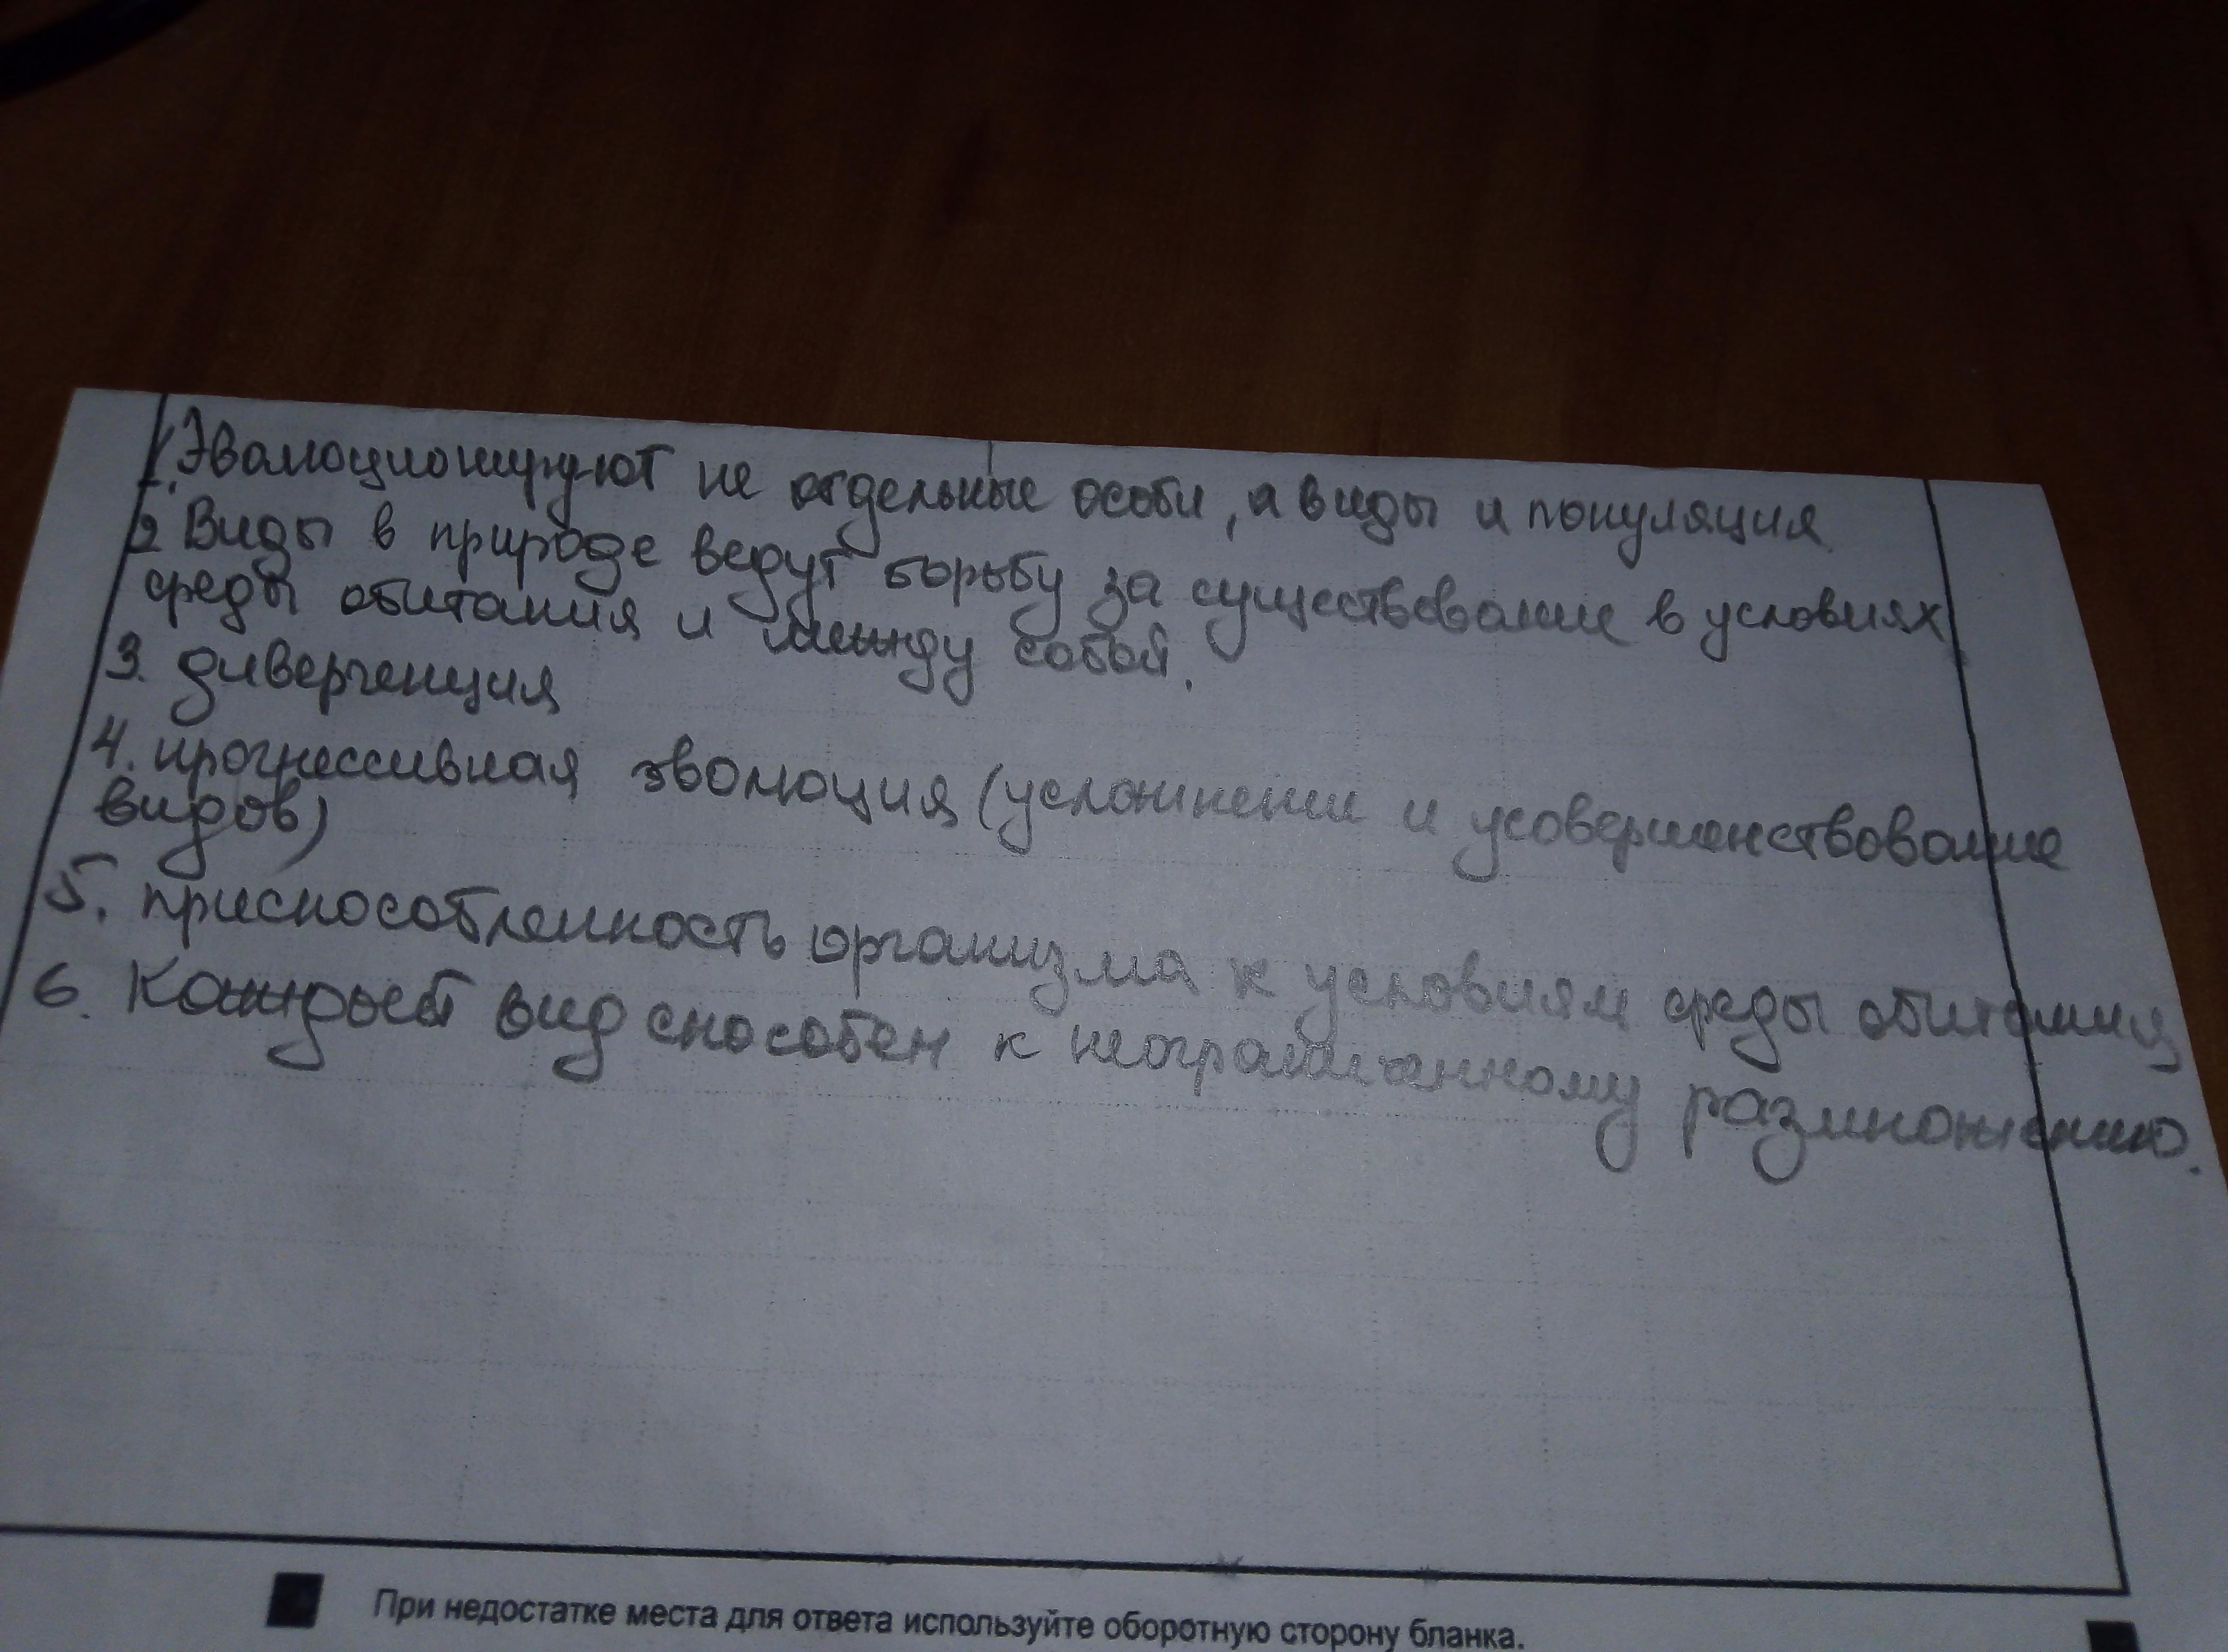 1. Эволюционируют не отдельные особи, а виды и популяция.
2. Виды в природе ведут борьбу за существование в условиях
среды обитания и между собой.
3. дивергенция
4. прогрессивная эволюция (усложнении и усовершенствование
видов)
5. приспособленность организма к условиям среды обитания
6. Каждый вид способен к неограниченному размножению.
При недостатке места для ответа используйте оборотную сторону бланка.